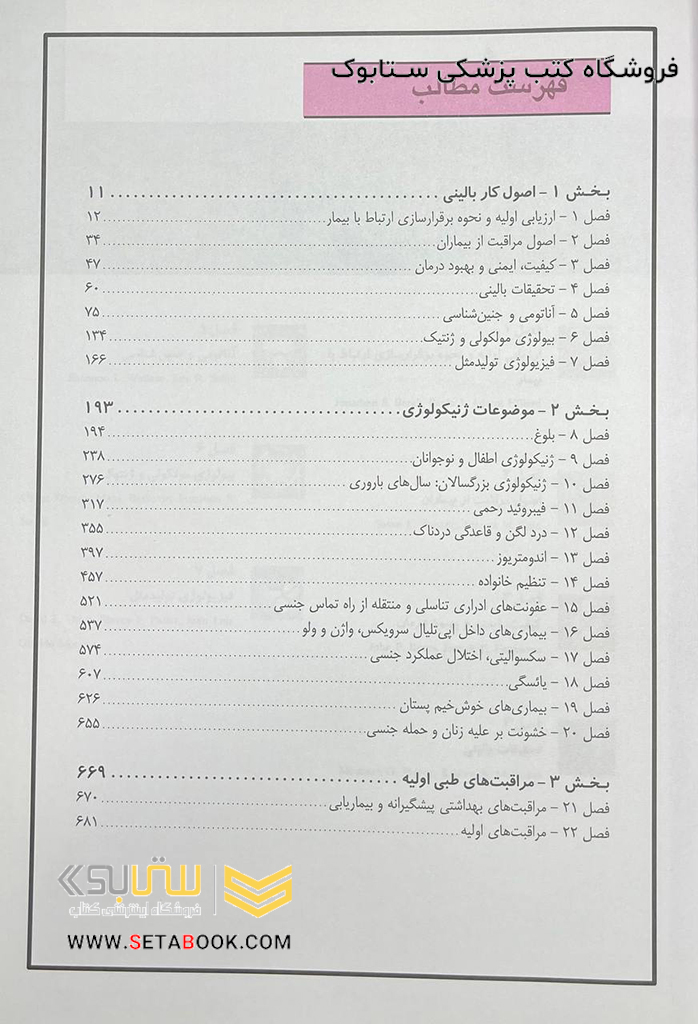 فروشگاه کتب پزشکی ستابوک
فهرست مطالب
بخش ۱ - اصول کار بالینی ۱۱
فصل ۱ - ارزیابی اولیه و نحوه برقرارسازی ارتباط با بیمار ۱۲
فصل ۲ - اصول مراقبت از بیماران ۳۴
فصل ۳ - کیفیت، ایمنی و بهبود درمان ۴۷
فصل ۴ - تحقیقات بالینی ۶۰
فصل ۵ - آناتومی و جنین‌شناسی ۷۵
فصل ۶ - بیولوژی مولکولی و ژنتیک ۱۳۴
فصل ۷ - فیزیولوژی تولیدمثل ۱۶۶
بخش ۲ - موضوعات ژنیکولوژی ۱۹۳
فصل ۸ - بلوغ ۱۹۴
فصل ۹ - ژنیکولوژی اطفال و نوجوانان ۲۳۸
فصل ۱۰ - ژنیکولوژی بزرگسالان: سال‌های باروری ۲۷۶
فصل ۱۱ - فیبروئید رحمی ۳۱۷
فصل ۱۲ - درد لگن و قاعدگی دردناک ۳۵۵
فصل ۱۳ - اندومتریوز ۳۹۷
فصل ۱۴ - تنظیم خانواده ۴۵۷
فصل ۱۵ - عفونت‌های ادراری تناسلی و منتقله از راه تماس جنسی ۵۲۱
فصل ۱۶ - بیماری‌های داخل اپی‌تلیال سرویکس، واژن و ولو ۵۳۷
فصل ۱۷ - سکسوالیتی، اختلال عملکرد جنسی ۵۷۴
فصل ۱۸ - یائسگی ۶۰۷
فصل ۱۹ - بیماری‌های خوش‌خیم پستان ۶۲۶
فصل ۲۰ - خشونت بر علیه زنان و حمله جنسی ۶۵۵
بخش ۳ - مراقبت‌های طبی اولیه ۶۶۹
فصل ۲۱ - مراقبت‌های بهداشتی پیشگیرانه و بیماریابی ۶۷۰
فصل ۲۲ - مراقبت‌های اولیه ۶۸۱
ستابوک
فروشگاه اینترنتی کتاب
WWW.SETABOOK.COM